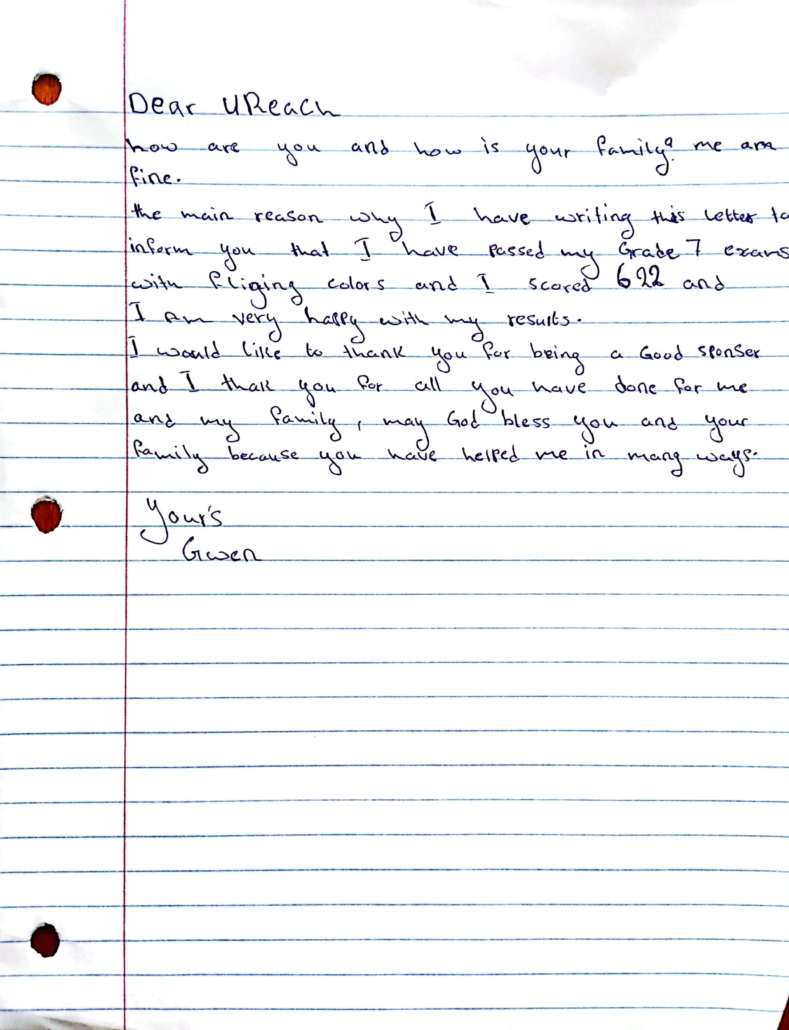 Dear UReach
how are you and how is your family? me am
fine.
the main reason why I have writing this letter to
inform you that I have passed my Grade 7 exams
with fliging colors and I scored 622 and
I am very happy with my results.
I would like to thank you for being a Good sponser
and I thak you for all you have done for me
and my family, may God bless you and your
family because you have helped me in many ways.
Your's
Gwen